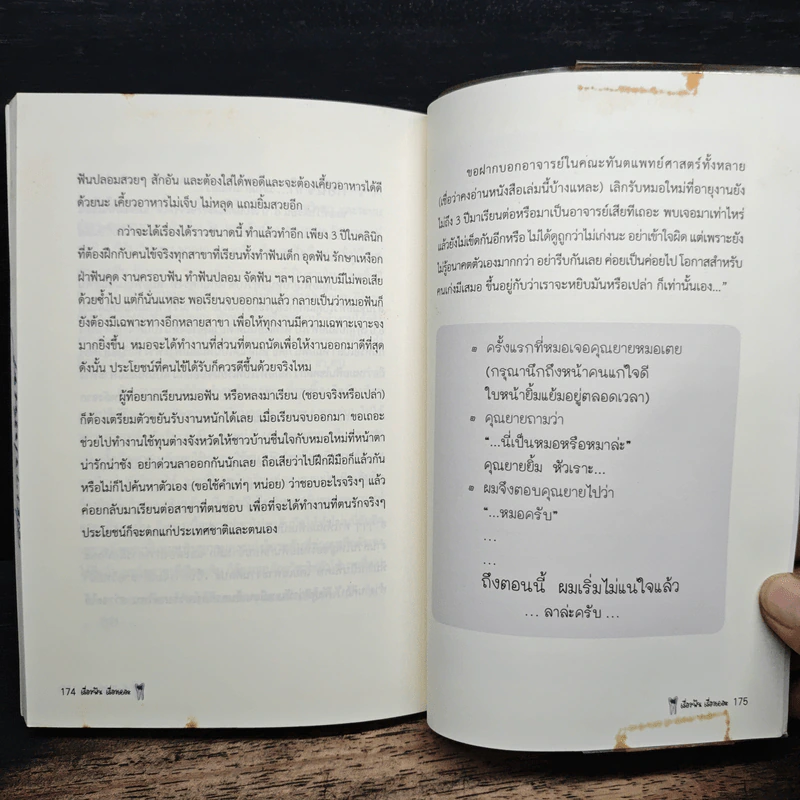 ฟันปลอมสวยๆ สักอัน และต้องใส่ได้พอดีและจะต้องเคี้ยวอาหารได้ดี
ด้วยนะ เคี้ยวอาหารไม่เจ็บ ไม่หลุด แถมยิ้มสวยอีก
กว่าจะได้เรื่องได้ราวขนาดนี้ ทำแล้วทำอีก เพียง 3 ปีในคลินิก
ที่ต้องฝึกกับคนไข้จริงทุกสาขาที่เรียนทั้งทำฟันเด็ก อุดฟัน รักษาเหงือก
ผ่าฟันคุด งานครอบฟัน ทำฟันปลอม จัดฟัน ฯลฯ เวลาแทบมีไม่พอเสีย
ด้วยซ้ำไป แต่ก็นั่นแหละ พอเรียนจบออกมาแล้ว กลายเป็นว่าหมอฟันก็
ยังต้องมีเฉพาะทางอีกหลายสาขา เพื่อให้ทุกงานมีความเฉพาะเจาะจง
มากยิ่งขึ้น หมอจะได้ทำงานที่ส่วนที่ตนถนัดเพื่อให้งานออกมาดีที่สุด
ดังนั้น ประโยชน์ที่คนไข้ได้รับก็ควรดีขึ้นด้วยจริงไหม
ผู้ที่อยากเรียนหมอฟัน หรือหลงมาเรียน (ชอบจริงหรือเปล่า)
ก็ต้องเตรียมตัวขยันรับงานหนักได้เลย เมื่อเรียนจบออกมา ขอเถอะ
ช่วยไปทำงานใช้ทุนต่างจังหวัดให้ชาวบ้านชื่นใจกับหมอใหม่ที่หน้าตา
น่ารักน่าชัง อย่าด่วนลาออกกันนักเลย ถือเสียว่าไปฝึกฝีมือก็แล้วกัน
หรือไม่ก็ไปค้นหาตัวเอง (ขอใช้คำเท่ๆ หน่อย) ว่าชอบอะไรจริงๆ แล้ว
ค่อยกลับมาเรียนต่อสาขาที่ตนชอบ เพื่อที่จะได้ทำงานที่ตนรักจริงๆ
ประโยชน์ก็จะตกแก่ประเทศชาติและตนเอง
174 เรื่องฟัน เรื่องหมอ
ขอฝากบอกอาจารย์ในคณะทันตแพทย์ศาสตร์ทั้งหลาย
(เชื่อว่าคงอ่านหนังสือเล่มนี้บ้างแหละ) เลิกรับหมอใหม่ที่อายุงานยัง
ไม่ถึง 3 ปีมาเรียนต่อหรือมาเป็นอาจารย์เสียทีเถอะ พบเจอมาเท่าไหร่
แล้วยังไม่เข็ดกันอีกหรือ ไม่ได้ดูถูกว่าไม่เก่งนะ อย่าเข้าใจผิด แต่เพราะยัง
ไม่รู้อนาคตตัวเองมากกว่า อย่ารีบกันเลย ค่อยเป็นค่อยไป โอกาสสำหรับ
คนเก่งมีเสมอ ขึ้นอยู่กับว่าเราจะหยิบมันหรือเปล่า ก็เท่านั้นเอง..."
ครั้งแรกที่หมอเจอคุณยายหมอเตย
(กรุณานึกถึงหน้าคนแก่ใจดี
ใบหน้ายิ้มแย้มอยู่ตลอดเวลา)
คุณยายถามว่า
"...นี่เป็นหมอหรือหมาล่ะ"
คุณยายยิ้ม หัวเราะ...
ผมจึงตอบคุณยายไปว่า
"...หมอครับ"
...
...
ถึงตอนนี้ ผมเริ่มไม่แน่ใจแล้ว
... ลาล่ะครับ ...
เรื่องฟัน เรื่องหมอ 175